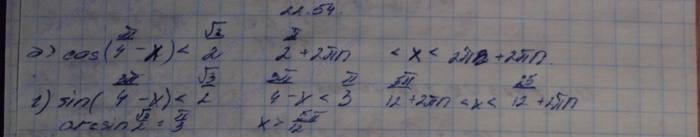 22.54.
в) cos(π/4 - x) < √2/2   π/2 + 2πn < x < 2π + 2πn
г) sin(3π/4 - x) < √3/2   3π/4 - x < π/3   5π/12 + 2πn < x < 25/12 + 2πn
arcsin √3/2 = π/3   x > 5π/12